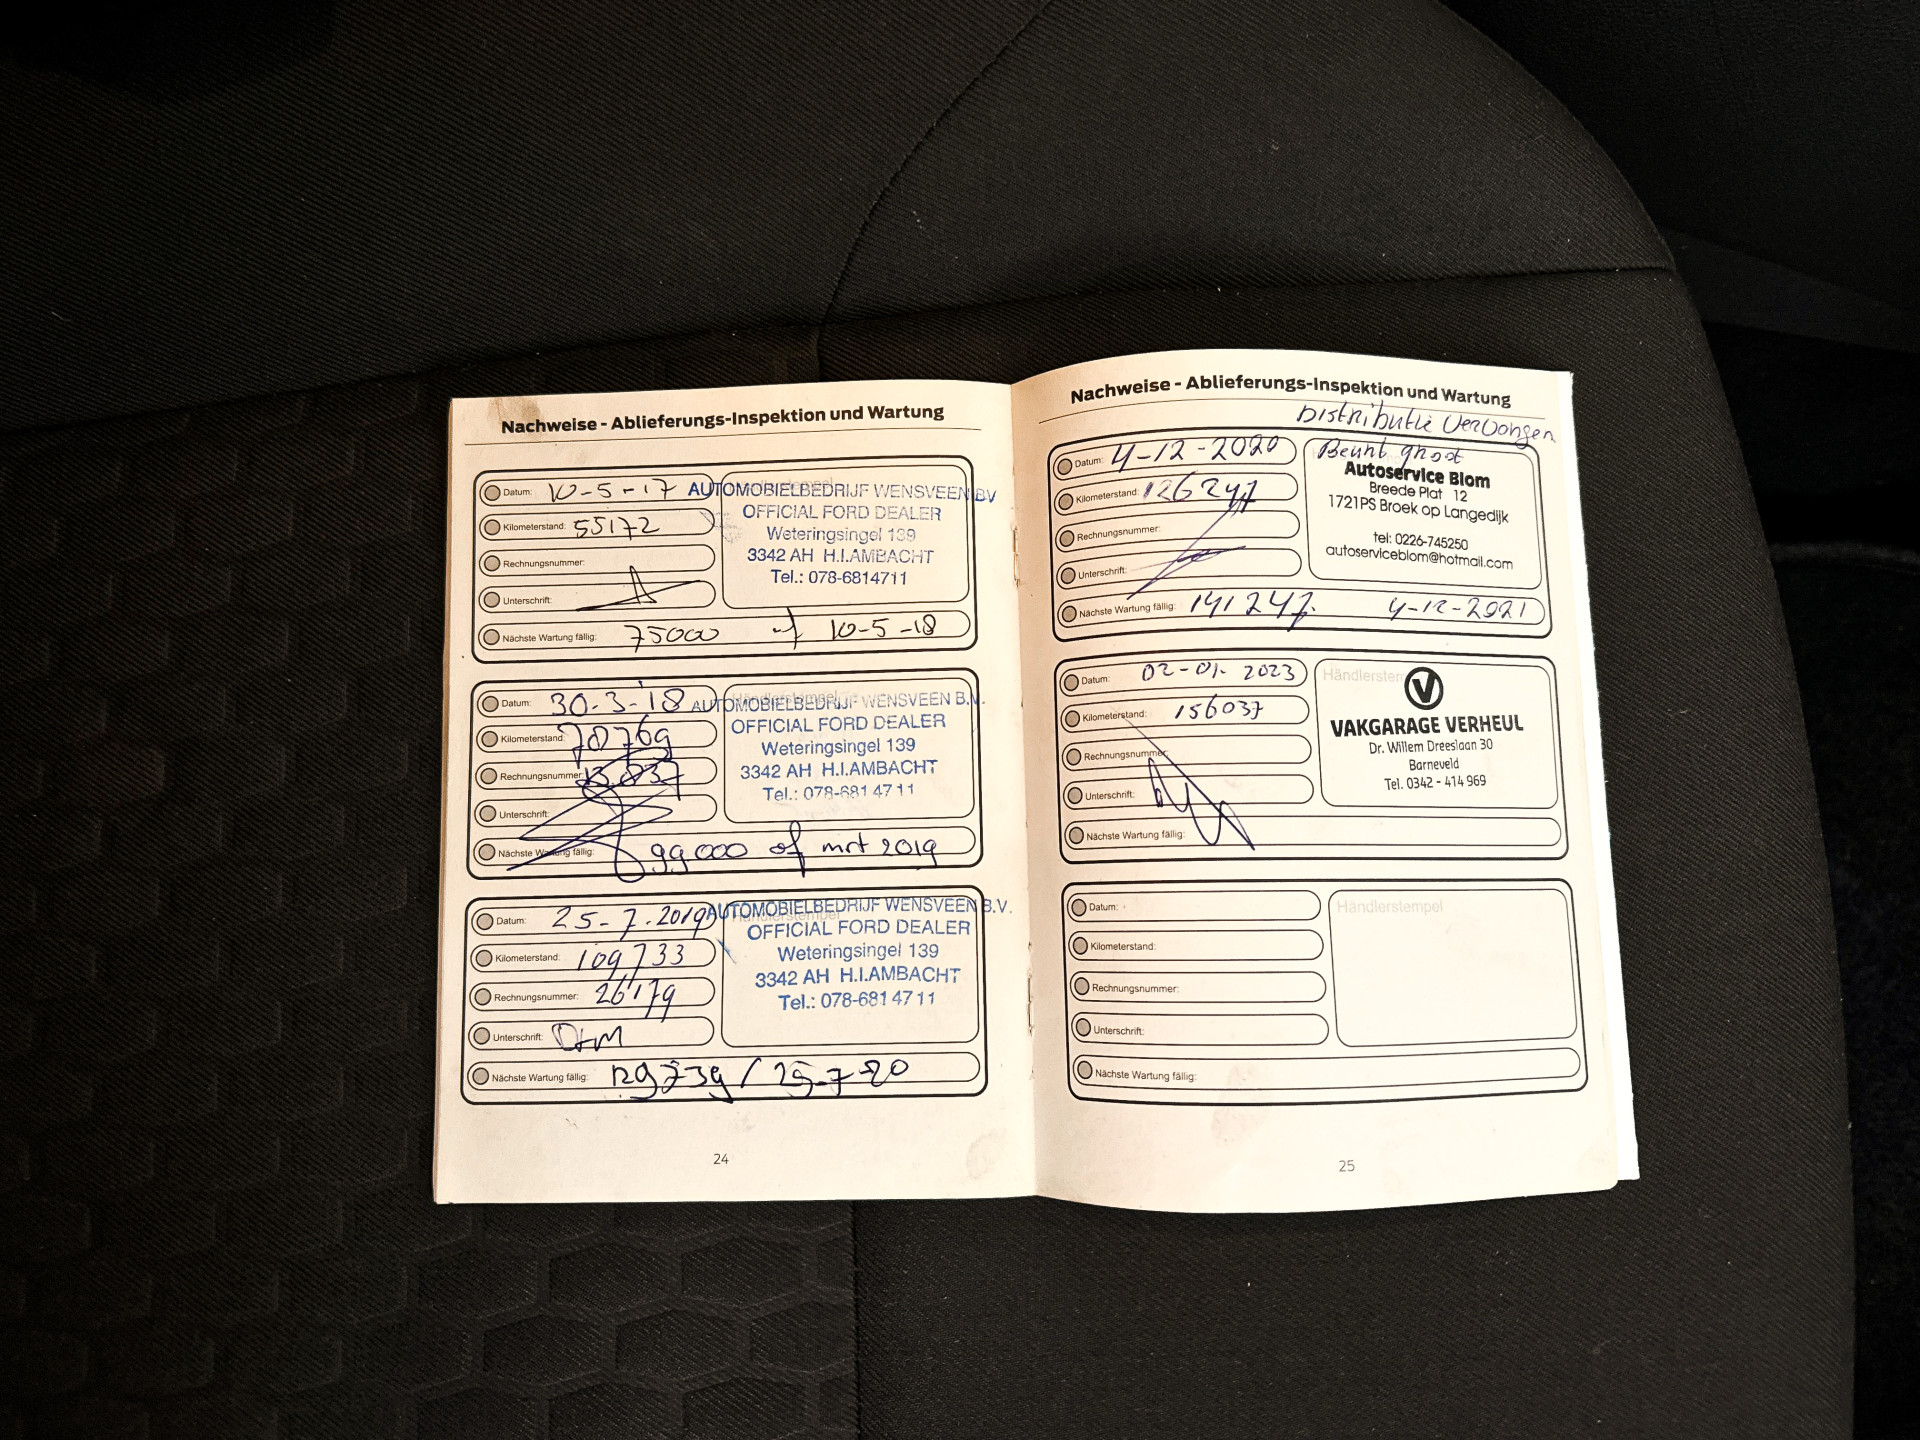 Nachweise - Ablieferungs-Inspektion und Wartung
Datum: 10-5-17
Kilometerstand: 55172
Rechnungsnummer:
Unterschrift:
Nächste Wartung fällig: 75000 of 10-5-18
AUTOMOBIELBEDRIJF WENSVEEN BV
OFFICIAL FORD DEALER
Weteringsingel 139
3342 AH H.I.AMBACHT
Tel.: 078-6814711
Datum: 30-3-'18
Kilometerstand: 78769
Rechnungsnummer:
Unterschrift:
Nächste Wartung fällig: 99.000 of mrt 2019
Händlerstempel
AUTOMOBIELBEDRIJF WENSVEEN B.V.
OFFICIAL FORD DEALER
Weteringsingel 139
3342 AH H.I.AMBACHT
Tel.: 078-681 47 11
Datum: 25-7-2019
Kilometerstand: 109733
Rechnungsnummer: 26179
Unterschrift:
Nächste Wartung fällig: 129739 / 25-7-20
Händlerstempel
AUTOMOBIELBEDRIJF WENSVEEN B.V.
OFFICIAL FORD DEALER
Weteringsingel 139
3342 AH H.I.AMBACHT
Tel.: 078-681 47 11
24
Nachweise - Ablieferungs-Inspektion und Wartung
Distributie vervangen
Beurt groot
Datum: 4-12-2020
Kilometerstand: 126247
Rechnungsnummer:
Unterschrift:
Nächste Wartung fällig: 141247. 4-12-2021
Autoservice Blom
Breede Plat 12
1721PS Broek op Langedijk
tel: 0226-745250
autoserviceblom@hotmail.com
Datum: 02-01-2023
Kilometerstand: 156037
Rechnungsnummer:
Unterschrift:
Nächste Wartung fällig:
Händlerstempel
V
VAKGARAGE VERHEUL
Dr. Willem Dreeslaan 30
Barneveld
Tel. 0342 - 414 969
Datum:
Kilometerstand:
Rechnungsnummer:
Unterschrift:
Nächste Wartung fällig:
Händlerstempel
25